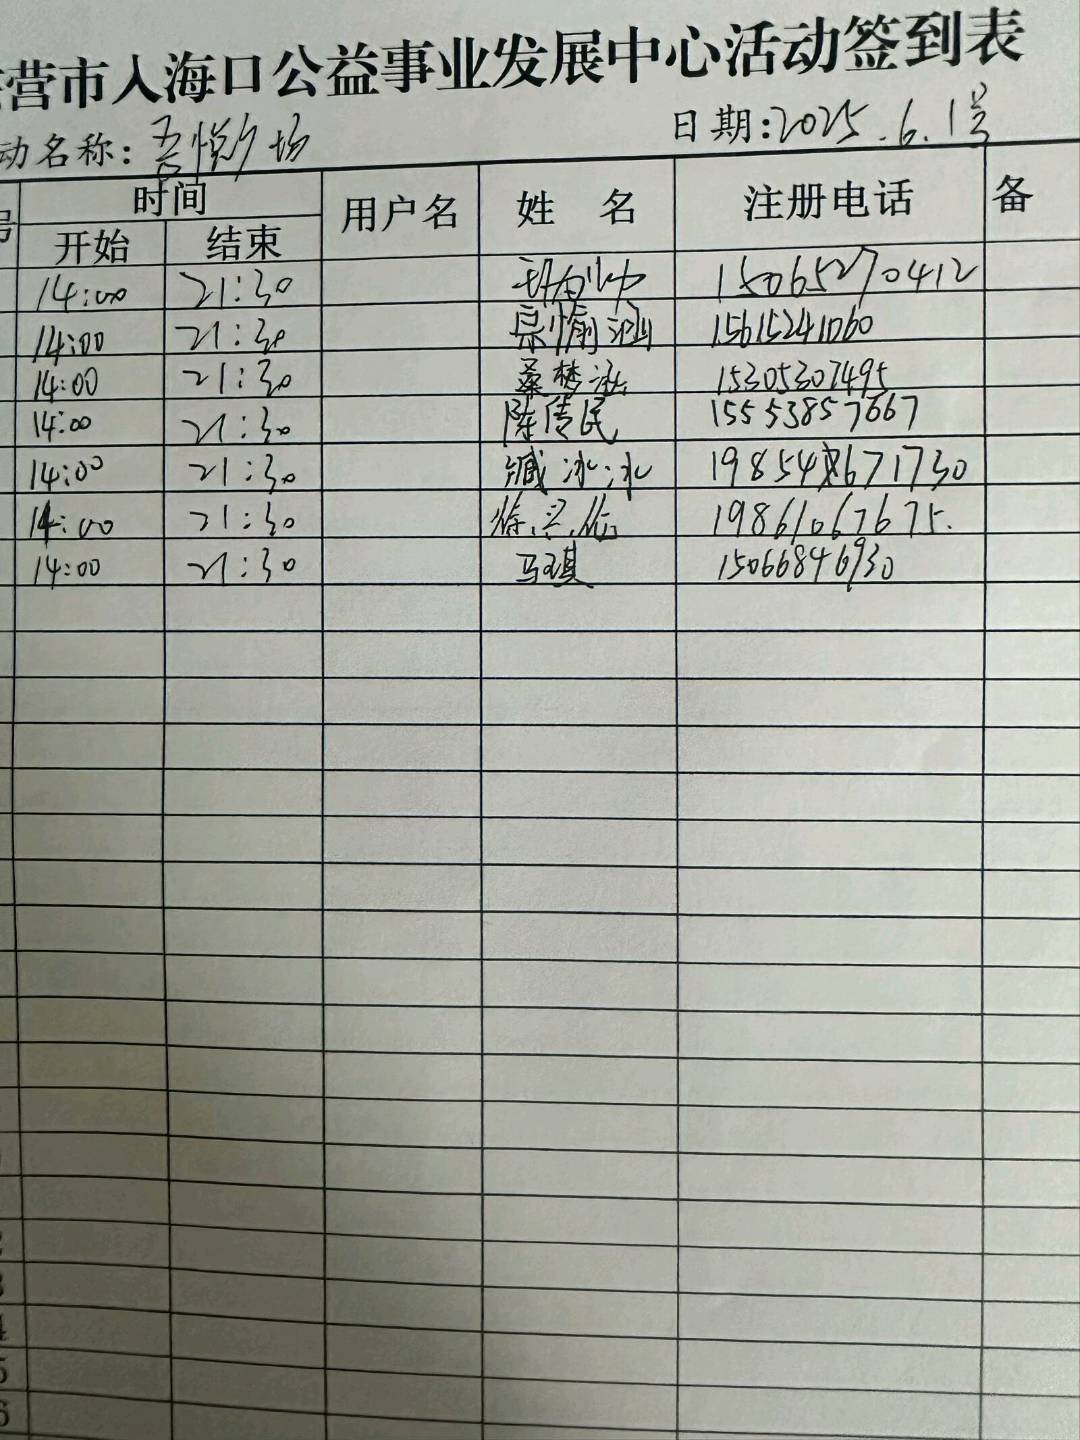 营市入海口公益事业发展中心活动签到表
动名称: 吾悦广场 日期:2025.6.1号
号 时间 用户名 姓 名 注册电话 备
开始 结束
14:00 21:30 15065270412
14:00 21:30 宗愉涵 15615241060
14:00 21:30 桑梦泓 15305307495
14:00 21:30 陈传民 15553857667
14:00 21:30 冰冰
14:00 21:30 徐 19861067675.
14:00 21:30 马琪 15066846930
3
4
5
6